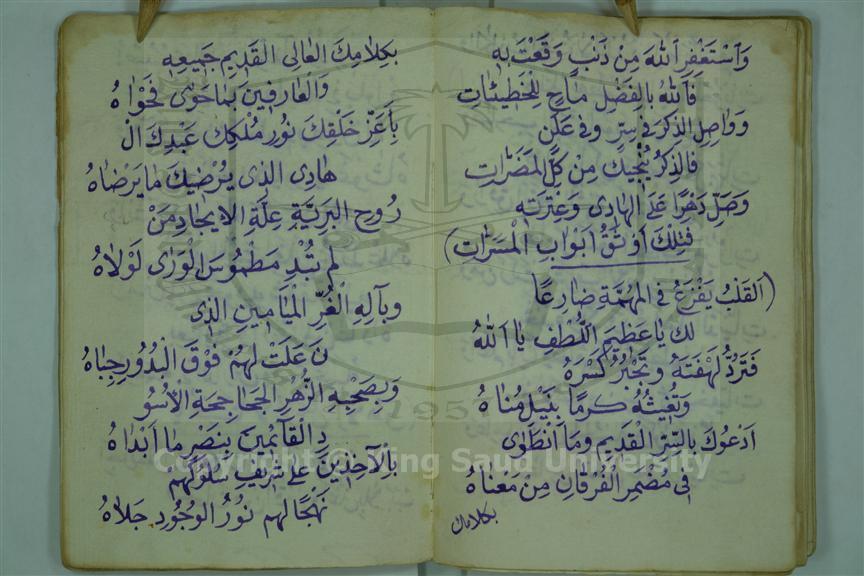 وَاَسْتَغْفِرِ اَللّٰهَ مِنْ ذَنْبٍ وَقَعْتَ بِهِ
فَاَللّٰهُ بِالْفَضْلِ مٰاحٍ لِلْخَطِيئٰاتِ
وَوَاصِلِ الذِكْرَ فِي سِرٍّ وَفِي عَلَنٍ
فَالذِكْرُ يُنْجِيكَ مِنْ كِلِّ الْمَضَرّٰاتِ
وَصَلِّ دَهْرًا عَلَى الْهٰادِي وَعِتْرَتِهِ
فَتِلْكَ اَوْثَقُ اَبْوٰابِ الْمَسَرّٰاتِ)
(اَلقَلْبُ يَفْزَعُ فِي الْمُهِمَّةِ ضٰارِعًا
لَكَ يٰا عَظِيمَ اللُّطْفِ يٰا اَللّٰهُ
فَتَرُدُّ لَهْفَتَهُ وَتَجْبُرُ كَسْرَهُ
وَتُغِيثُهُ كَرَمًا بِنَيْلِ مُنٰاهُ
اَدْعُوكَ بِالسِّرِّ الْقَدِيمِ وَمَا انْطَوٰى
فِي مُضْمَرِ الْفُرْقٰانِ مِنْ مَعْنٰاهُ
بكلامك
بِكِلٰامِكَ الْعٰالِى الْقَدِيمِ جَمِيعِهِ
وَالْعٰارِفِينَ بِمٰا حَوٰى فَحْوٰاهُ
بِاَعَزِّ خَلْقِكَ نُورِ مُلْكِكَ عَبْدِكَ الْ
هٰادِى الذِى يُرْضِيكَ مٰا يَرْضٰاهُ
رُوحِ البَرِيَّةِ عِلَّةِ الاِيجٰادِ مَنْ
لَمْ تُبْدِ مَطْمُوسَ الْوَرٰى لَوْلٰاهُ
وَبِآلِهِ الْغُرِّ الْمَيٰامِينِ الذِى
نَ عَلَتْ لَهُمْ فَوْقَ الْبُدُورِ جِبٰاهُ
وَبِصَحْبِهِ الزُّهْرِ الجَحٰاجِحَةِ الْاُسُو
دِ الْقٰآئِمِينَ بِنَصْرِ مٰا اَبْدٰاهُ
بِالْآخِذِينَ عَلٰى شَرِيفِ سُلُوكِهِمْ
نَهْجًا لَهُمْ نُورُ الوُجُودِ جَلٰاهُ
Copyright © King Saud University
1957